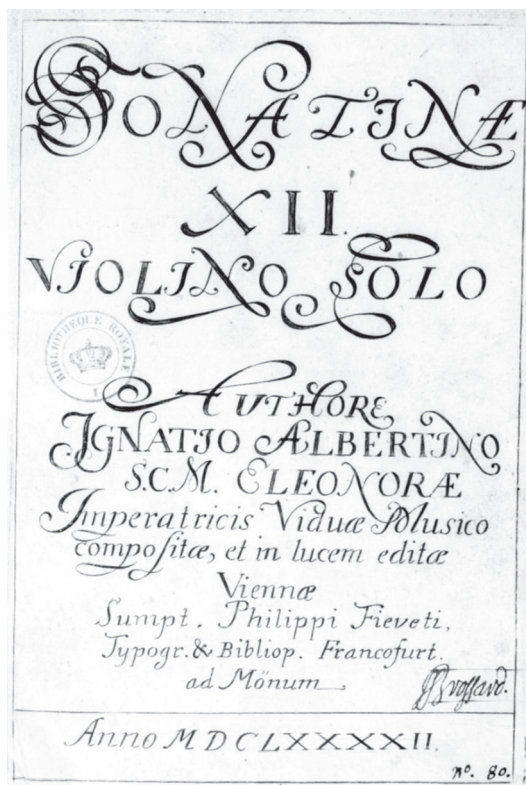 SONATINÆ
XII.
VIOLINO SOLO
BIBLIOTHEQUE ROYALE
AUTHORE
IGNATIO ALBERTINO
S.C.M. ELEONORÆ
Imperatricis Viduæ Musico
compoſitæ, et in lucem editæ
Viennæ
Sumpt. Philippi Fieveti,
Typogr. & Bibliop. Francofurt.
ad Mönum
Brossard.
Anno MDCLXXXXII.
nº. 80.